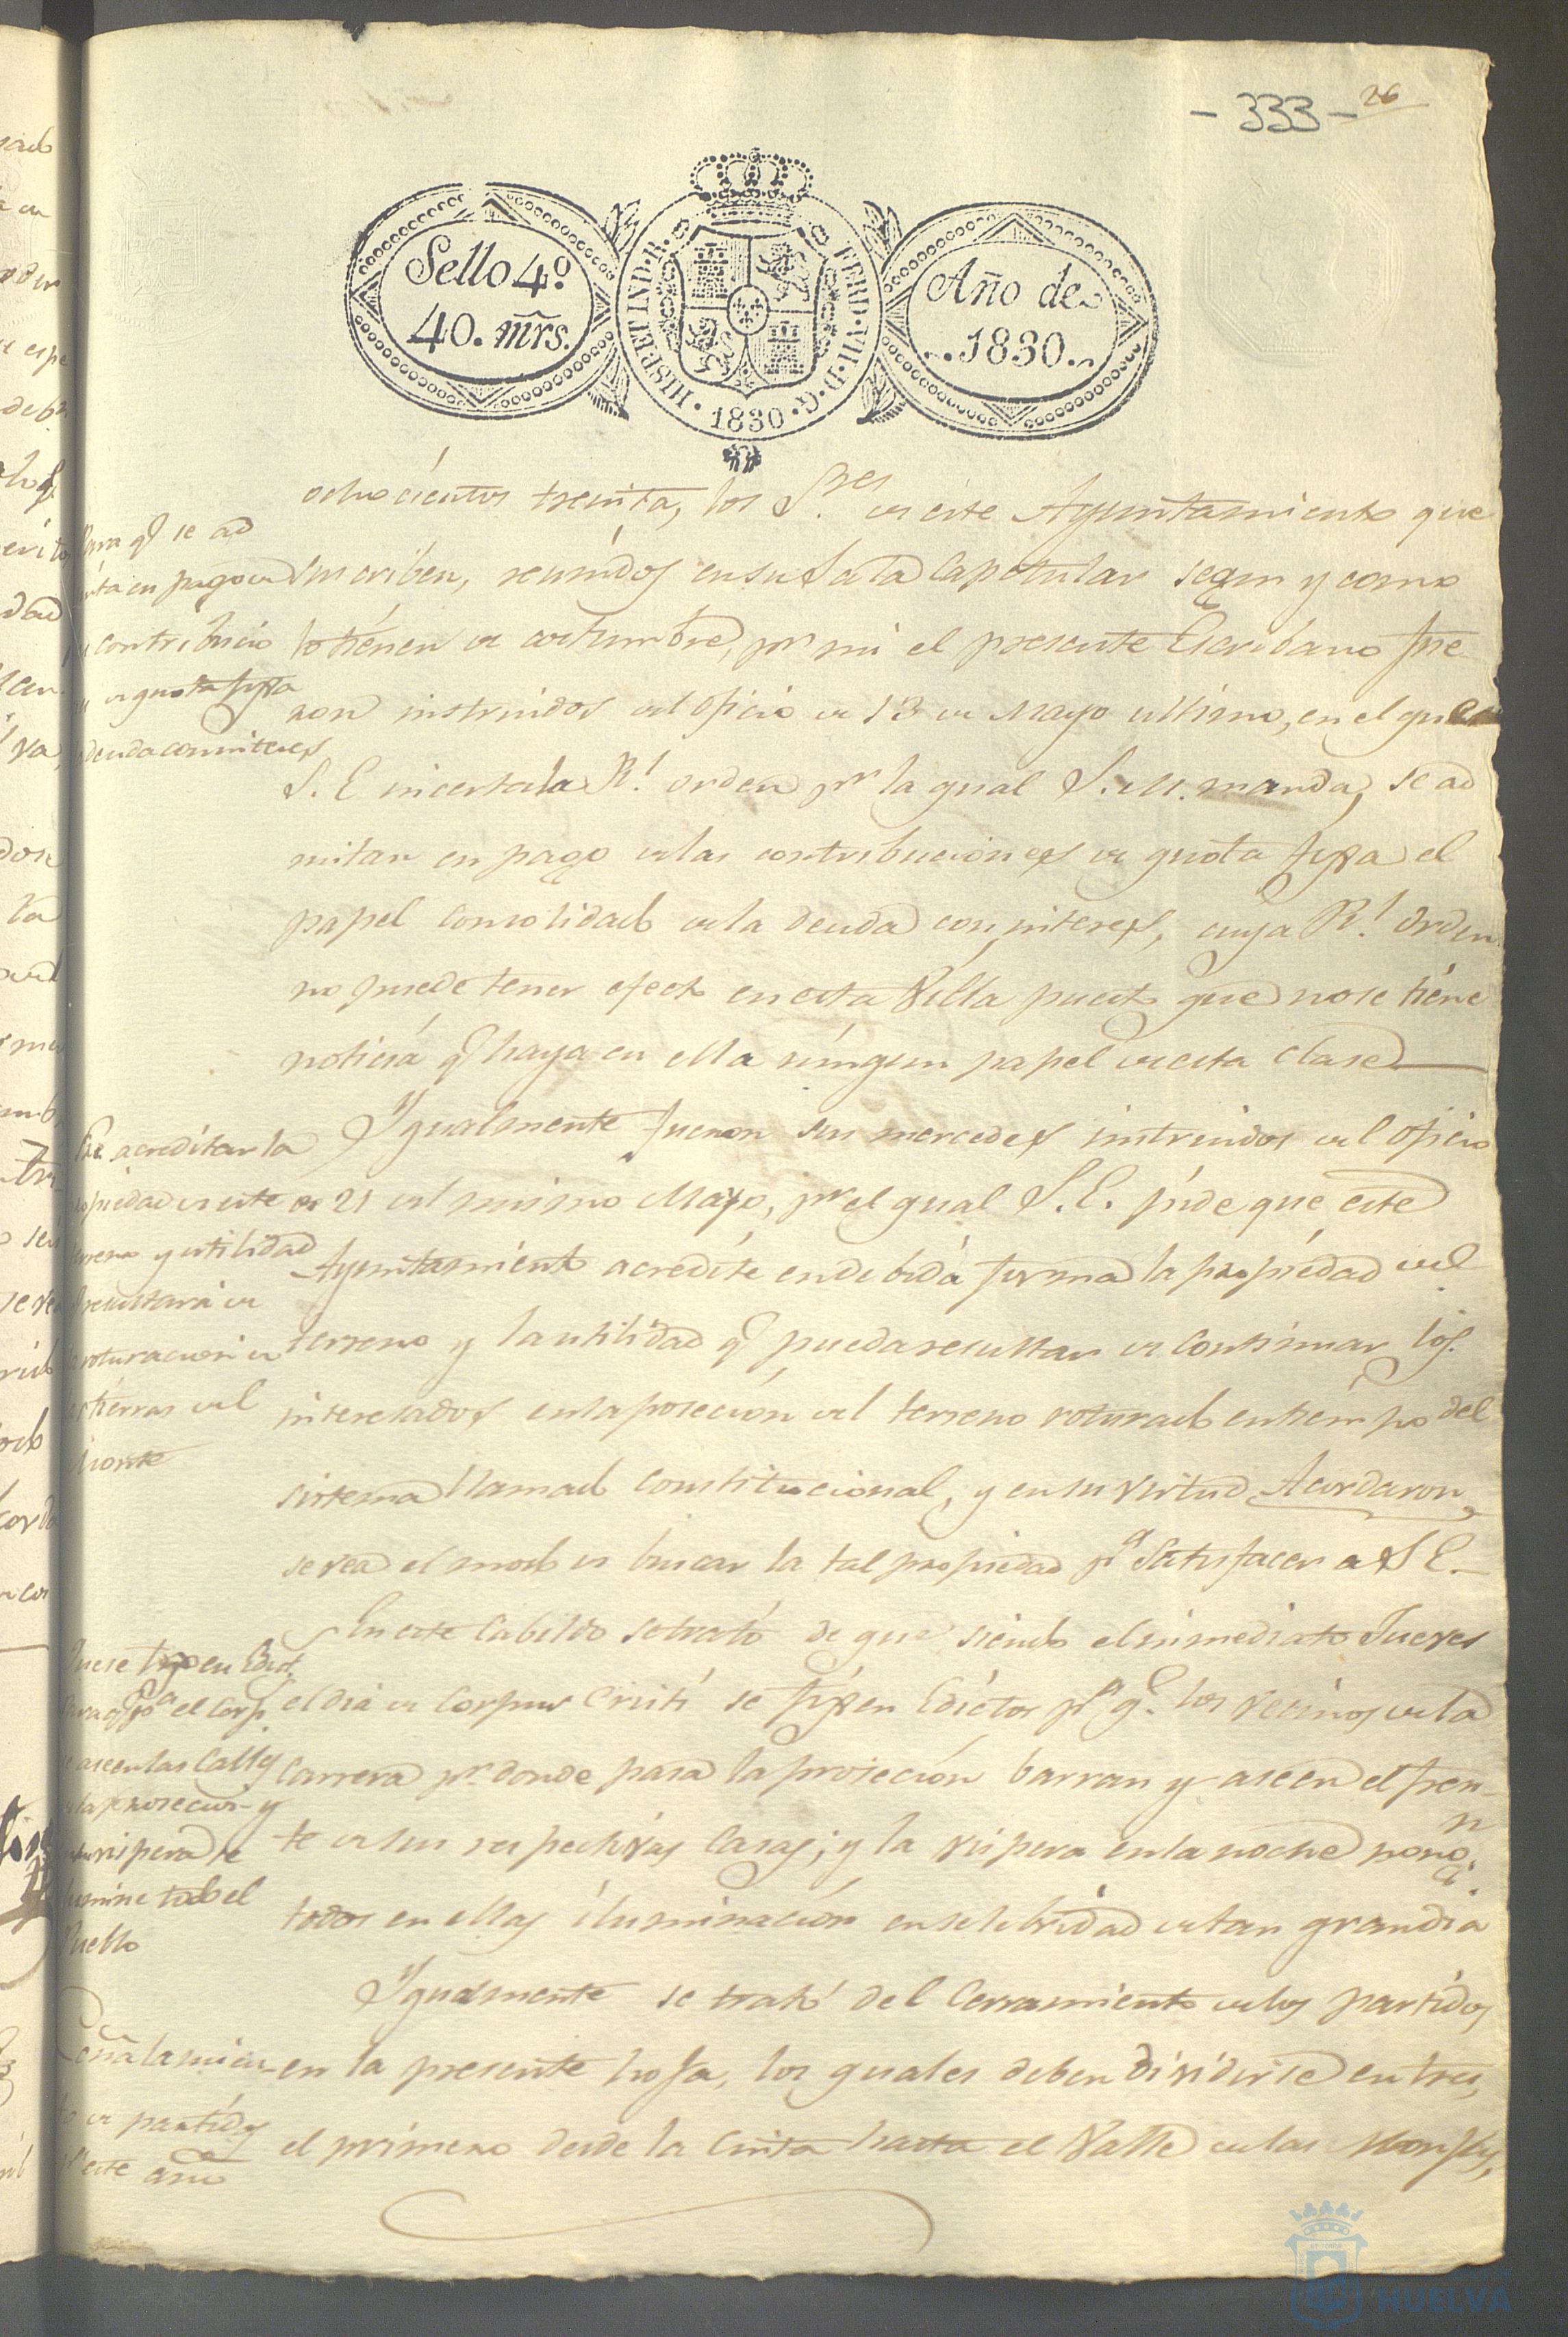 - 333 -
26
Sello 4º
40. mrs.
HISP. ET IND. R.
FERD. VII. D. G.
1830
Año de
1830.
ochocientos treinta, los S.res de este Ayuntamiento que
suscriben, reunidos en su Sala Capitular segun y como
lo tienen de costumbre, pr mi el presente Escribano fue
ron instruidos del oficio de 13 de Mayo ultimo, en el que
S. E incerta la Rl orden pr la qual S. M. manda, se ad
mitan en pago de las contribuciones de quota fixa el
papel consolidado de la deuda con interes, cuya Rl orden
no puede tener efecto en esta Villa puesto que no se tiene
noticia q haya en ella ningun papel de esta clase
Para q se ad
ta en pago de
contribucio
de quota fixa
deuda con interes
Ygualmente fueron sus mercedes instruidos del oficio
de 21 del mismo Mayo, pr el qual S. E. pide que este
Ayuntamiento acredite en debida forma la propiedad del
terreno y la utilidad q pueda resultar de continuar los
interesados en la posecion del terreno roturado en tiempo del
sistema llamado Constitucional, y en su virtud Acordaron
se vea el modo de buscar la tal propiedad pa satisfacer a S E
acreditar la
propiedad de este
terreno y utilidad
resultará de
roturacion de
tierras del
Monte
En este Cabildo se trató de que siendo el inmediato Jueves
el dia de Corpus Cristi se fixen Edictos pa q. los vecinos de la
carrera pr donde pasa la prosecion barran y aseen el fren-
te de sus respectivas Casas; y la vispera en la noche pongn
todos en ellas iluminacion en selebridad de tan gran dia
Que se fixen Edict
para q pa el Corps
aseen las Calles
la prosecion y
vispera se
lumine todo el
Pueblo
Ygualmente se trató del Cerramiento de los partidos
en la presente hoja, los quales deben dividirse en tres,
el primero desde la Cinta hasta el Valle de las Monjas,
Señalamien
to de partidos
pa este año
HUELVA